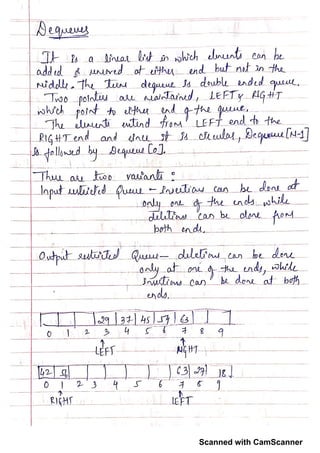 Dequeues
It is a linear list in which elements can be
added & removed at either end but not in the
middle. The term dequeue is double ended queue.
Two pointers are maintained, LEFT & RIGHT
which point to either end of the queue.
The elements extend from LEFT end to the
RIGHT end and since it is circular, Dequeue[N-1]
is followed by Dequeue[0].
There are two variants :
Input restricted Queue - Insertions can be done at
only one of the ends while
deletions can be done from
both ends.
Output restricted Queue - deletions can be done
only at one of the ends, while
Insertions can be done at both
ends.
29 37 45 57 63
0 1 2 3 4 5 6 7 8 9
LEFT RIGHT
42 63 27 18
0 1 2 3 4 5 6 7 8 9
RIGHT LEFT
Scanned with CamScanner